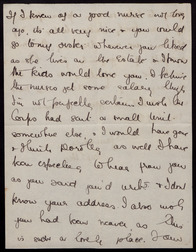 If I knew of a good nurse not long
ago, its all very nice & you would
go to my sister whenever you liked
as she lives on the Estate & I know
the kids would love you. I believe
the nurses get some salary tho'
I'm not perfectly certain. I wish the
Corps had sent a small Unit
somewhere else, I would have you
& as well. I have
been expecting to hear from you
as you said you'd write & I don't
know your address. I also wish
you had been nearer as this
is such a lovely place.